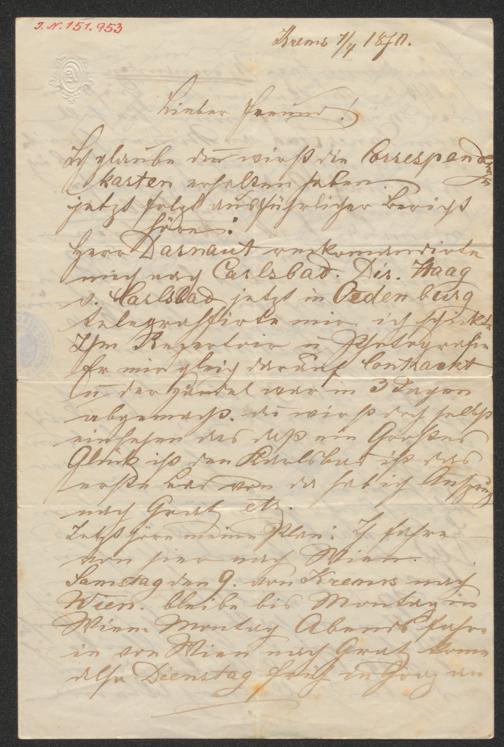 I.N. 151.953
Krems 7/4 1870.
Lieber Freund!
Ich glaube du wirst die Correspondenz
karten erhalten haben
jetzt folgt ausführlicher Bericht
höre:
Herr Darnaut reckomandirte
mich nach Carlsbad. Dir. Haag
v. Carlsbad jetzt in Oedenburg
telegrafirte mir ich schickte
Ihm Repertoir u Photografie
Er mir gleich darauf Contrackt
u der Handel war in 3 Tagen
abgemacht. du wirst doch selbst
einsehen das daß ein Großes
Glück ist den Karlsbad ist das
erste und von da hab ich
nach Gratz etc.
Jetzt höre meine Plan: Ich fahre
von hier nach Wien.
Samstag den 9. von Krems nach
Wien. bleibe bis Montag in
Wien Montag Abends fahre
ich von Wien nach Gratz komme
also Dienstag früh in Graz an